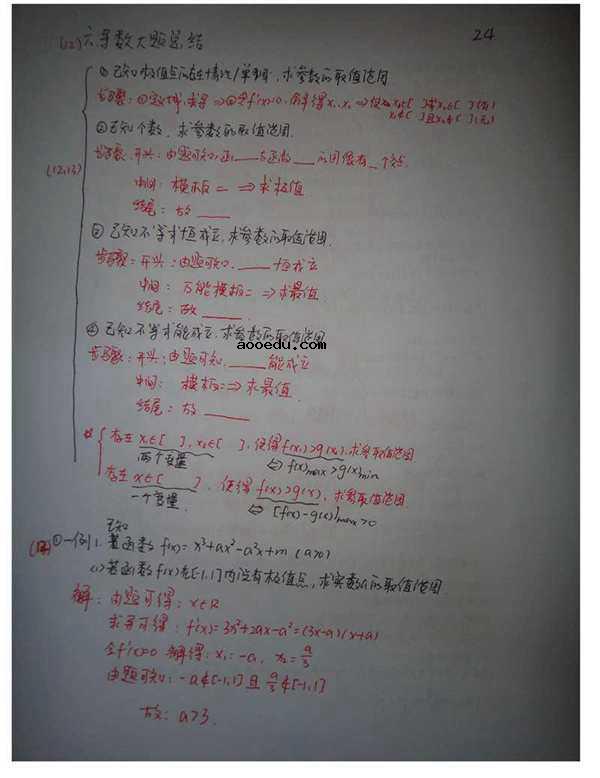 24
(12) 六、导数大题总结
① 已知极值点存在情况/单调,求参数的取值范围
步骤:①定义域,求导⇒②令f'(x)=0,解得x₁,x₂⇒
② 已知个数,求参数的取值范围.
步骤:开头:由题可知,函___与函数___的图像有_个交点
(12,13)
中间:模板二⇒求极值
结尾:故___
③ 已知不等式恒成立,求参数的取值范围.
步骤:开头:由题可知,___恒成立
中间:万能模板二⇒求最值
结尾:故___
④ 已知不等式能成立,求参数的取值范围
aooedu.com
步骤:开头:由题可知,___能成立
中间:模板二⇒求最值
结尾:故___
存在x₁∈[ ],x₂∈[ ],使得f(x₁)>g(x₂),求参取值范围
两个变量 ⇔ f(x)max>g(x)min
存在x∈[ ],使得f(x)>g(x),求参取值范围.
一个变量 ⇔ [f(x)-g(x)]max>0
已知
①一例1.若函数f(x)=x³+ax²-a²x+m (a>0)
(1)若函数f(x)在[-1,1]内没有极值点,求实数a的取值范围
解:由题可得:x∈R
求导可得:f'(x)=3x²+2ax-a²=(3x-a)(x+a)
令f'(x)=0 解得:x₁=-a,x₂=a/3
由题可知:-a∉[-1,1]且a/3∉[-1,1]
故:a>3.